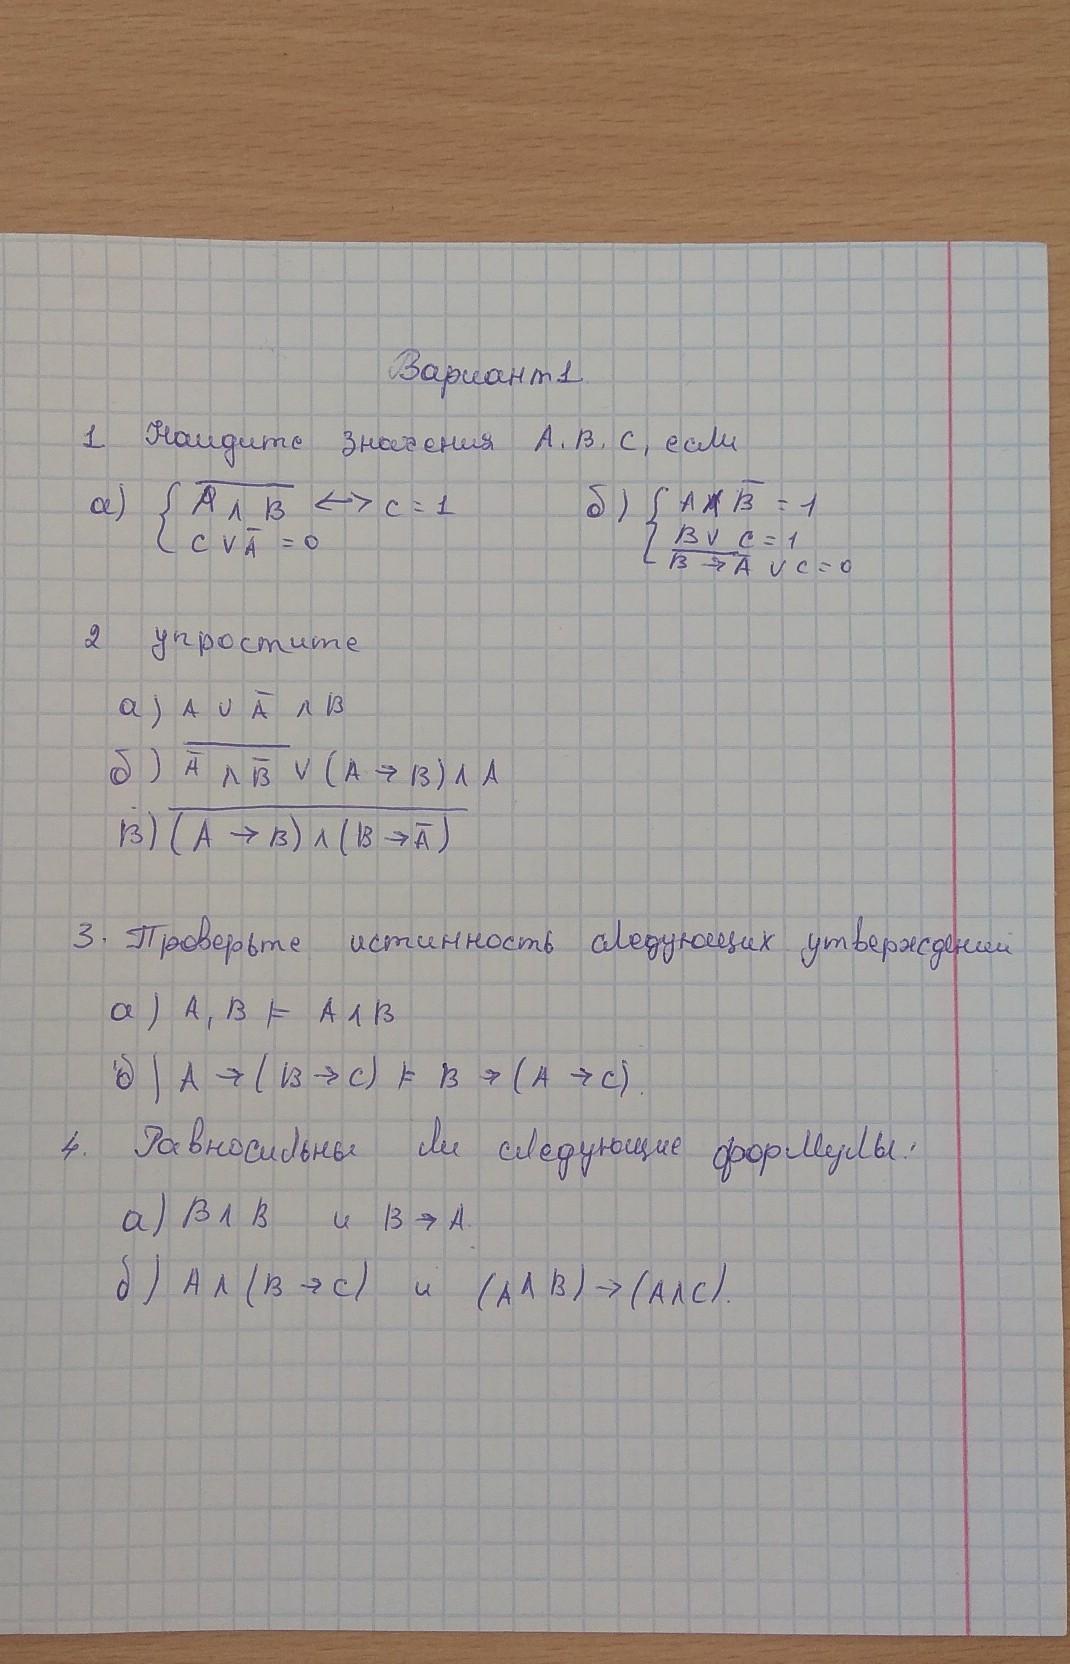 Вариант 1
1 Найдите значения A. B. C, если
а) { \overline{A ∧ B} ⟷ C = 1
C ∨ Ā = 0
б) { A ∧ B̄ = 1
B ∨ C = 1
\overline{B → Ā} ∨ C = 0
2 упростите
а) A ∨ Ā ∧ B
б) \overline{Ā ∧ B̄} ∨ (A → B) ∧ A
В) \overline{(A → B) ∧ (B → Ā)}
3. Проверьте истинность следующих утверждений
а) A, B ⊨ A ∧ B
б) A → (B → C) ⊨ B → (A → C).
4. Равносильны ли следующие формулы:
а) B ∧ B и B → A.
б) A ∧ (B → C) и (A ∧ B) → (A ∧ C).